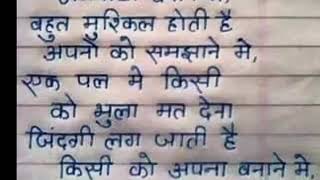 बहुत मुश्किल होती है
अपनो को समझाने मे,
एक पल मे किसी
को भुला मत देना
जिंदगी लग जाती है
किसी को अपना बनाने मे,